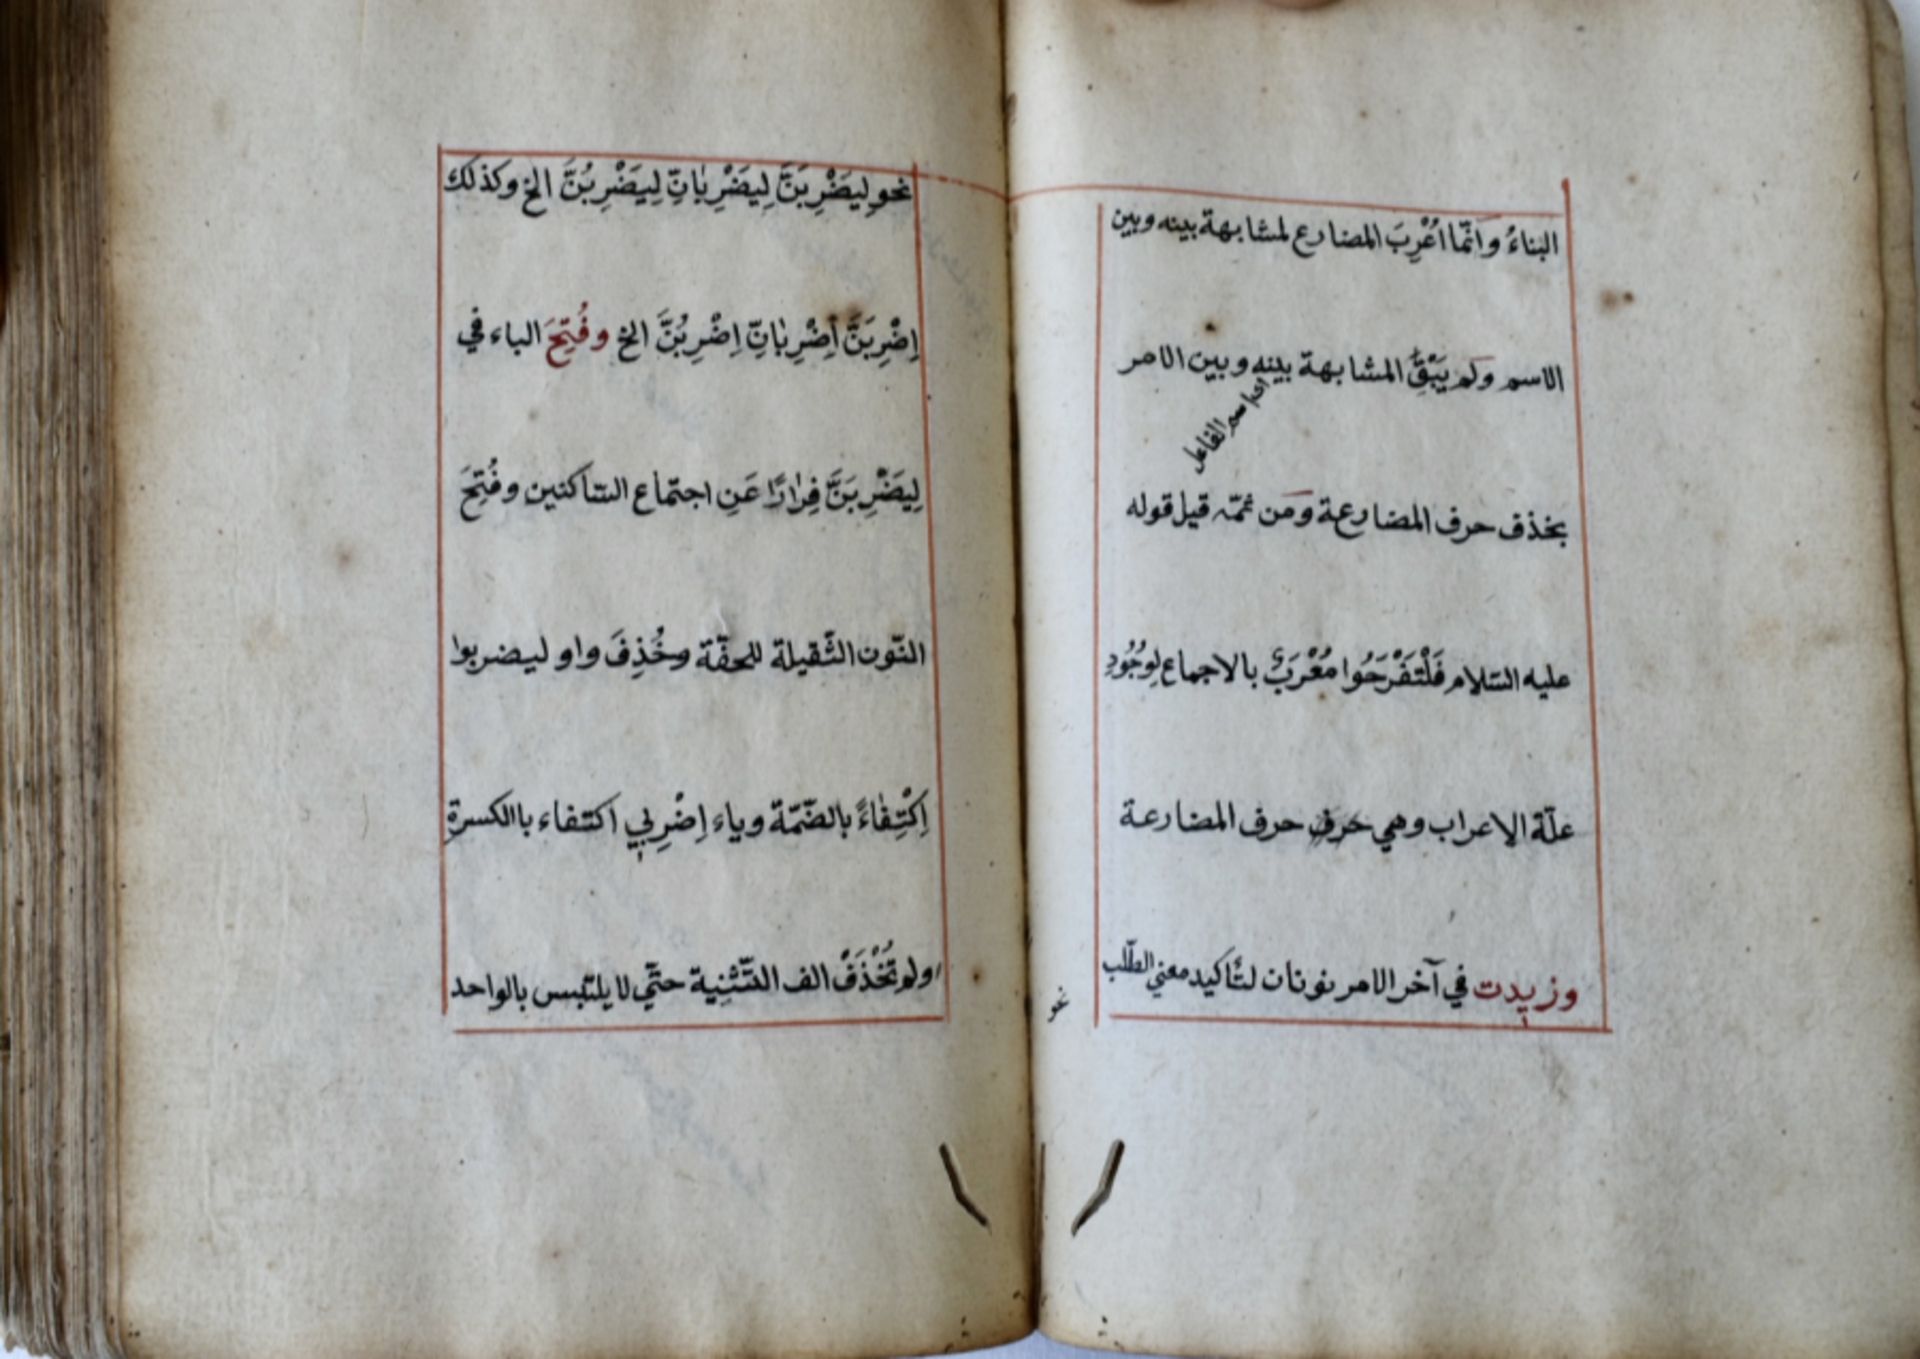 البناءُ وَاَنّما اُعْرِبَ المضارع لمشابهة بينه وبين
الاسم وَلم يَبْقَ المشابهة بينه وبين الامر
اى اسم الفاعل
بخذف حرف المضارعة وَمَن ثمّه قيل قوله
عليه السّلام فَلْتَفْرَحُوا مُعْرَبٌ بالاجماع لِوُجُودِ
علّة الاعراب وهي حرف حرف المضارعة
وزيدت في آخر الامر نونان لتَأكيد معني الطّلب
نحو
نحو لِيَضْرِبَنَّ لِيَضْرِبٰانِّ لِيَضْرِبُنَّ الخ وكذلك
اِضْرِبَنَّ اِضْرِبٰانِّ اِضْرِبُنَّ الخ وفُتِحَ الباء في
لِيَضْرِبَنَّ فِرٰارًا عَنِ اجتماع السّاكنين وفُتِحَ
النّون الثّقيلة للحفّة وخُذِفَ واو ليضربوا
اِكْتِفٰاءً بالضّمّة وياء اِضْرِبي اكتفاء باالكسرةِ
ولم تُخْذَفْ الف التّثنِية حتّي لا يلتبس بالواحد